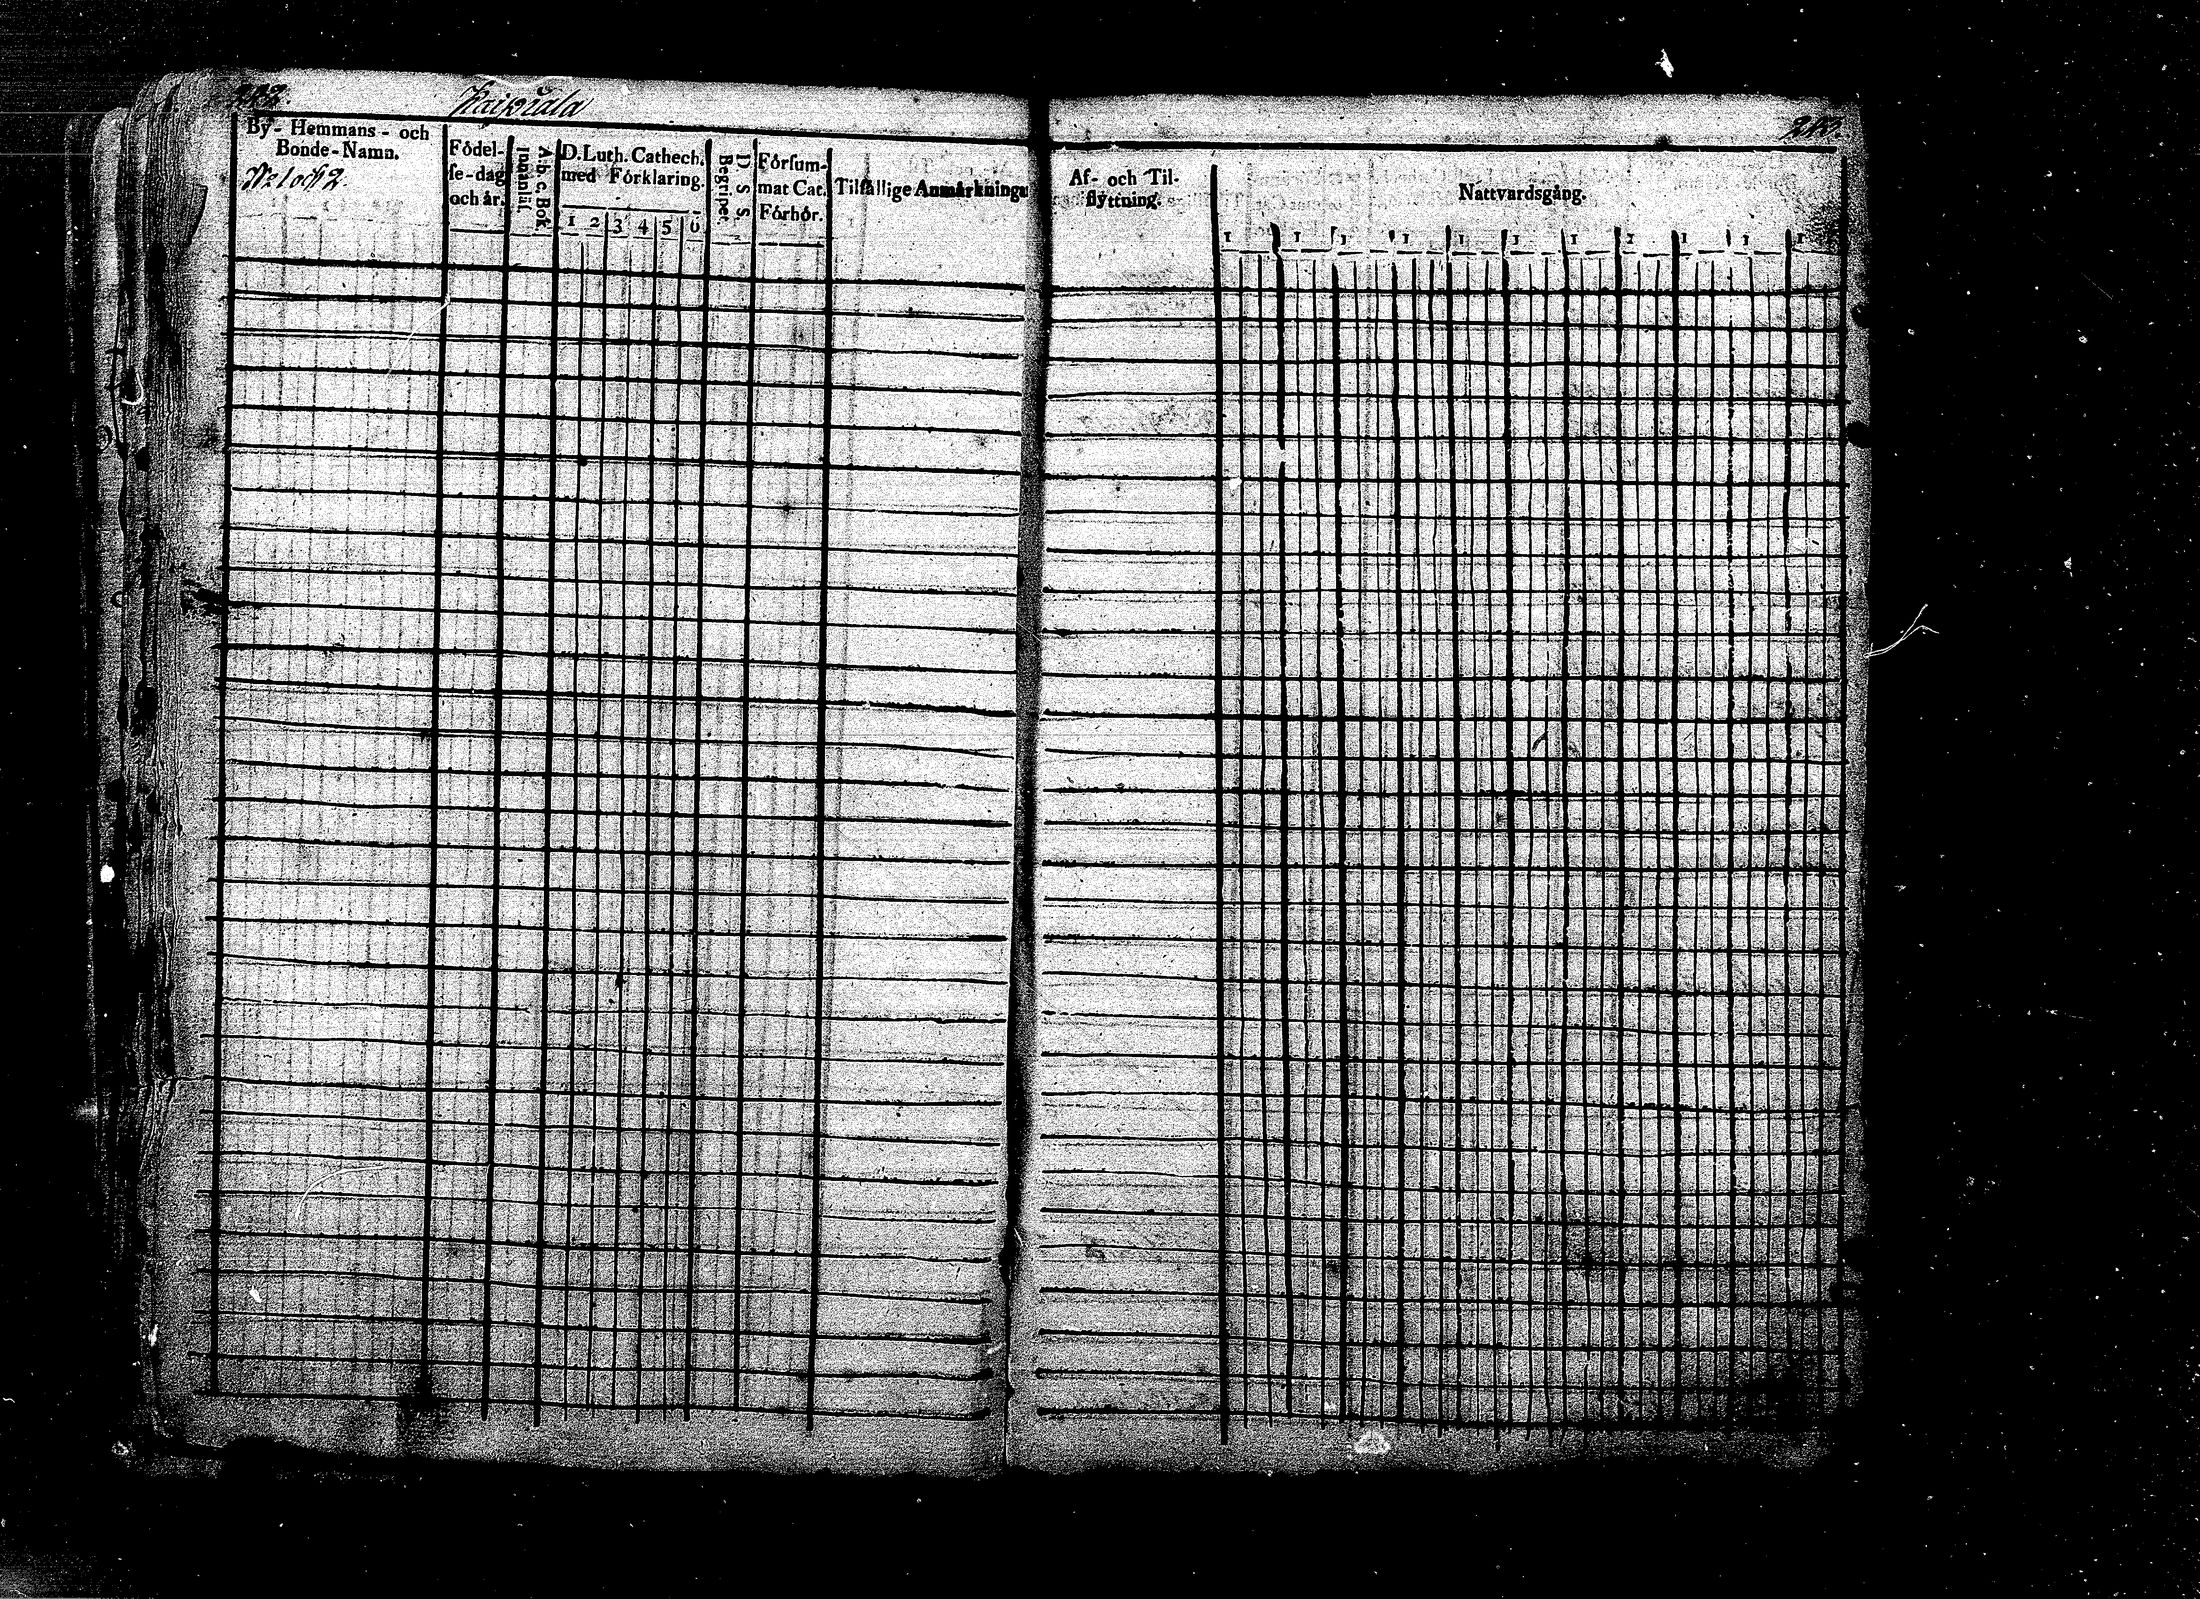 212.
Waikiala
By- Hemmans- och
Bonde-Namn.
No 1 och 2.
Födel-
se-dag
och år.
A. b. c Bok
innanläs.
D. Luth. Cathech.
med Förklaring.
1 2 3 4 5 6
D. S. S.
Begripet.
Försum-
mat Cat.
Förhör.
Tilfällige Anmärkningar
213.
Af- och Til-
flyttning.
Nattvardsgång.
1 1 1 1 1 1 1 1 1 1 1